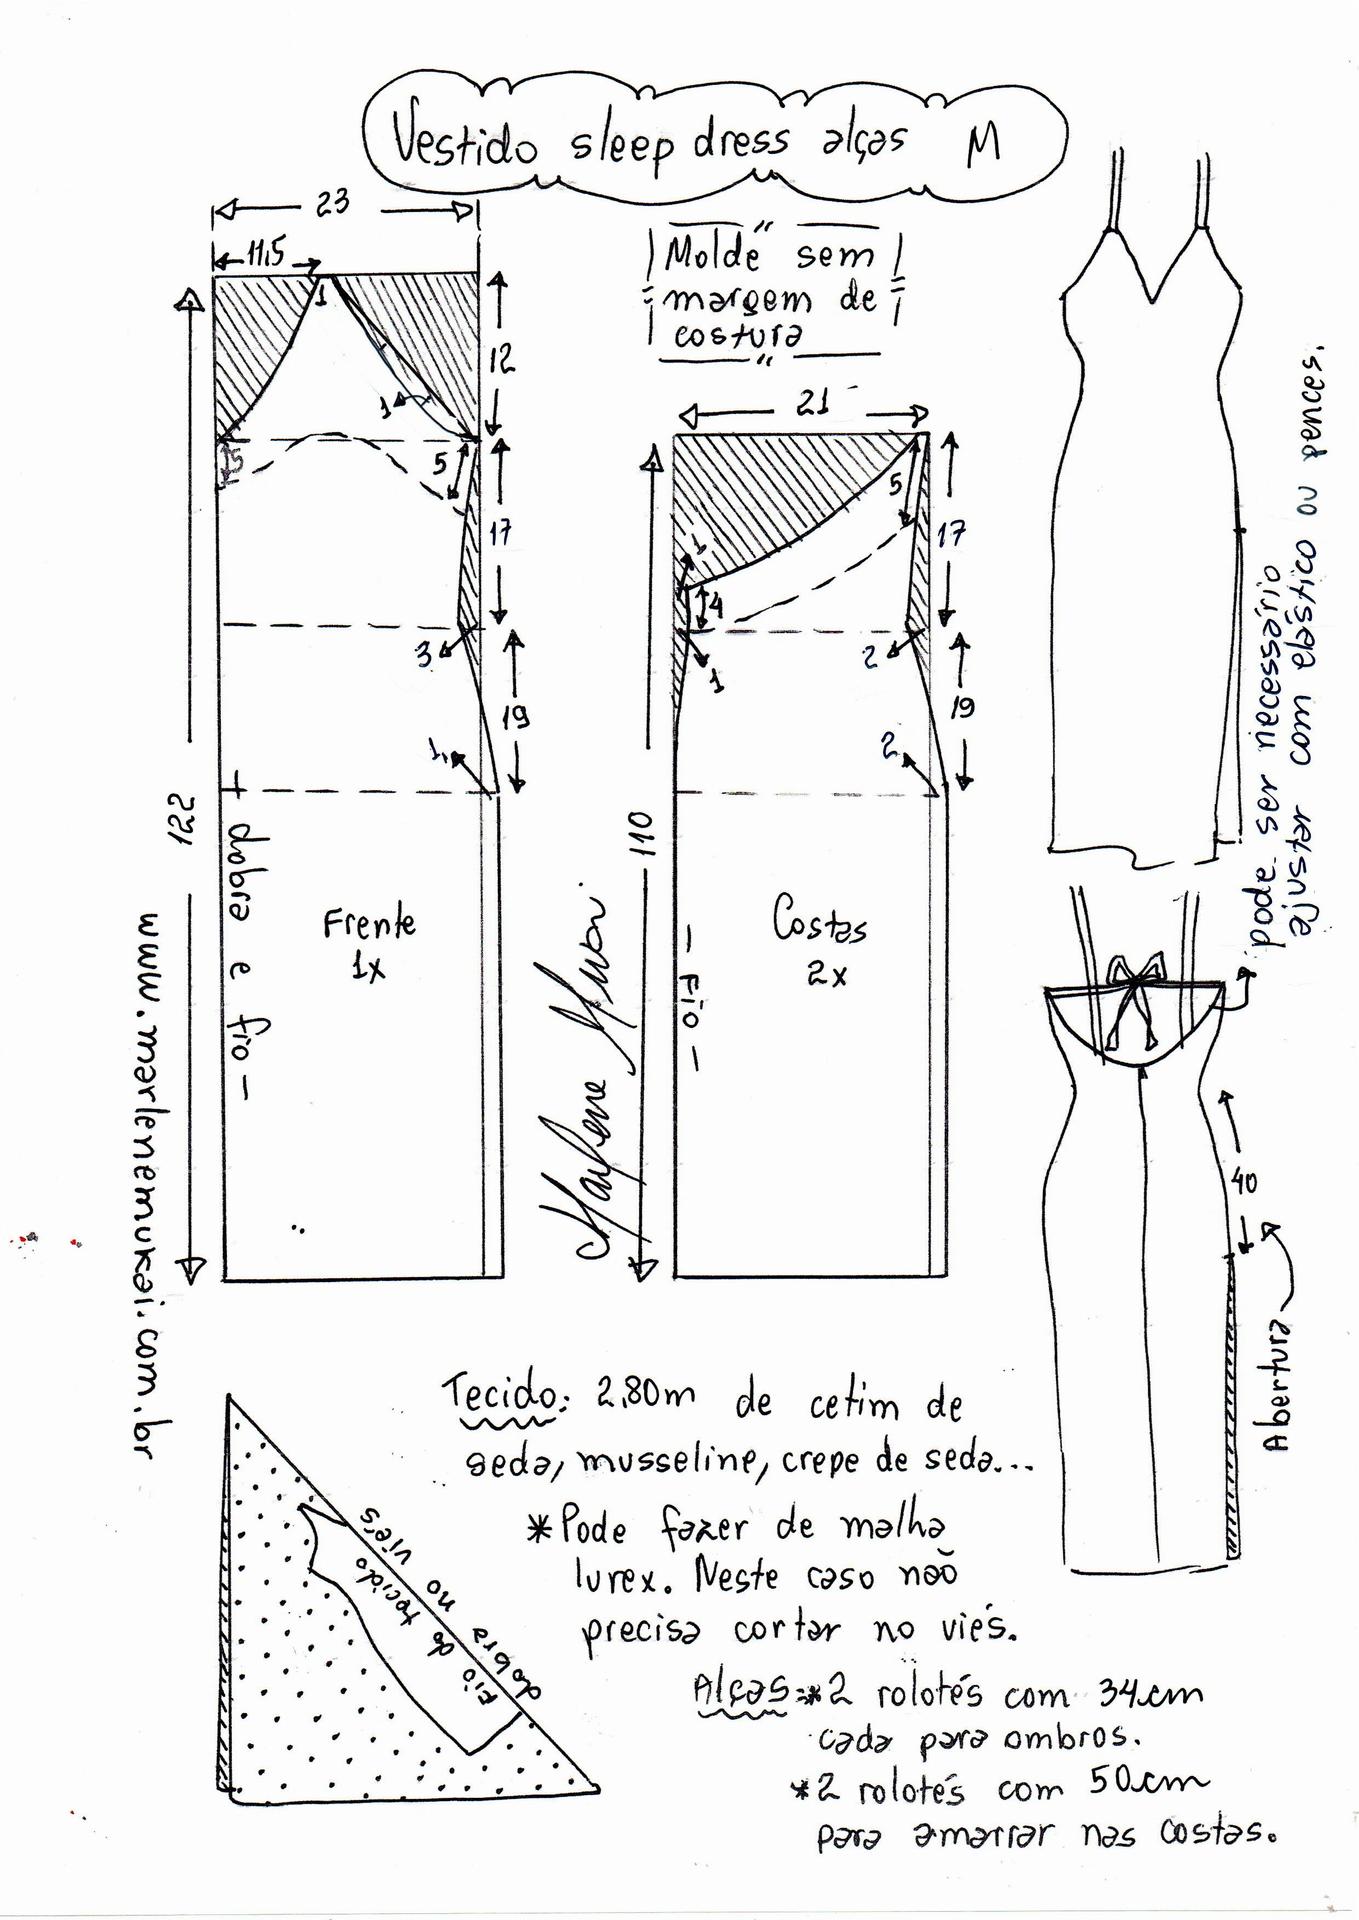 Vestido sleep dress alças M
Molde sem
margem de
costura
23
11,5
1
12
1
5
5
17
3
19
1
122
+ dobra e fio -
Frente
1x
www.marlenemukai.com.br
21
5
17
1
4
2
1
19
2
110
- Fio -
Costas
2x
pode ser necessário
ajustar com elástico ou pences.
40
Abertura
Tecido: 2,80m de cetim de
seda, musseline, crepe de seda...
*Pode fazer de malha
lurex. Neste caso não
precisa cortar no viés.
Alças:*2 rolotés com 34cm
cada para ombros.
*2 rolotés com 50cm
para amarrar nas costas.
Fio do tecido
dobra no viés